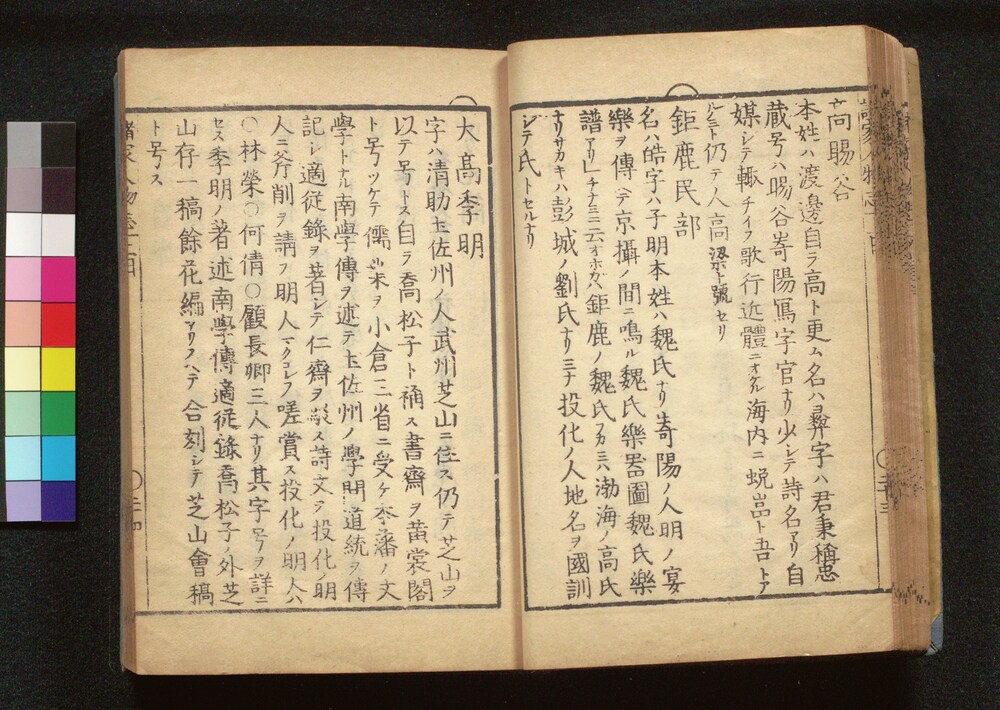 高賜谷
本姓ハ渡邊自ラ高ト更ム名ハ彜字ハ君秉稱忠
藏号ハ暘谷嵜陽寫字官ナリ少シテ詩名アリ自
媒シテ輙チイフ歌行近體ニオ井ル海内ニ蛻嵓ト吾トア
ルニト仍テ人高梁ト號セリ
鉅鹿民部
名ハ皓字ハ子明本姓ハ魏氏ナリ嵜陽ノ人明ノ宴
樂ヲ傳ヘテ京攝ノ間ニ鳴ル魏氏樂器圖魏氏樂
譜アリ
鉅鹿ノ魏氏
渤海ノ高氏
ナリサカキハ彭城ノ劉氏ナリミナ投化ノ人地名ヲ國訓
シテ氏トセルナリ
大高季明
字ハ清助土佐州ノ人武州芝山ニ住ス仍テ芝山ヲ
以テ号トス自ラ喬松子ト稱ス書齋ヲ黄裳閣
ト号ツケテ儒業ヲ小倉三省ニ受ケ本藩ノ文
學トナル南學傳ヲ述テ土佐州ノ學問道統ヲ傳
記シ適從錄ヲ著シテ仁齋ヲ駁ス詩文ヲ投化ノ明
人ニ斧削ヲ請フ明人マタコレヲ嗟賞ス投化ノ明人ハ
○林榮○何倩○顧長卿三人ナリ其字号ヲ詳ニ
セス季明ノ著述南學傳適從錄喬松子ノ外芝
山存一稿餘花編アリスヘテ合刻シテ芝山會稿
ト号ス
諸家人物志